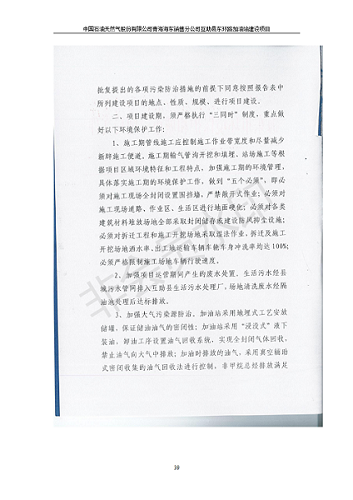 中国石油天然气股份有限公司青海海东销售分公司互助县东环路加油站建设项目
批复提出的各项污染防治措施的前提下同意按照报告表中
所列建设项目的地点、性质、规模、进行项目建设。
二、项目建设期，须严格执行“三同时”制度，重点做
好以下环境保护工作：
1、施工期管线施工应控制施工作业带宽度和尽量减少
新辟施工便道，施工期输气管沟开挖和填埋、站场施工等根
据项目区域环境特征和工程特点，加强施工期的环境管理，
具体落实施工期的环境保护工作，做到“五个必须”，即必
须对施工现场全封闭设置围挡墙，严禁敞开式作业；必须对
施工现场道路、作业区、生活区进行地面硬化；必须对各类
建筑材料堆放场地全部采取封闭储存或建设防风抑尘设施；
必须对拆迁工程和施工开挖场地采取湿法作业，拆迁及施工
开挖场地洒水率、出工地运输车辆车轮车身冲洗率均达 100%；
必须严格限制施工场地车辆行驶速度。
2、加强项目运营期间产生的废水处置，生活污水经县
城污水管网排入互助县生活污水处理厂，场地清洗废水经隔
油池处理后达标排放。
3、加强大气污染源防治。加油站采用地埋式工艺安放
储罐，保证储油油气的密闭性；加油站采用“浸没式”液下
装油，卸油工序设置油气回收系统，实现全封闭气体回收，
禁止油气向大气中排放；加油时排放的油气，采用真空辅助
式密闭收集的油气回收法进行控制，非甲烷总烃排放满足
39